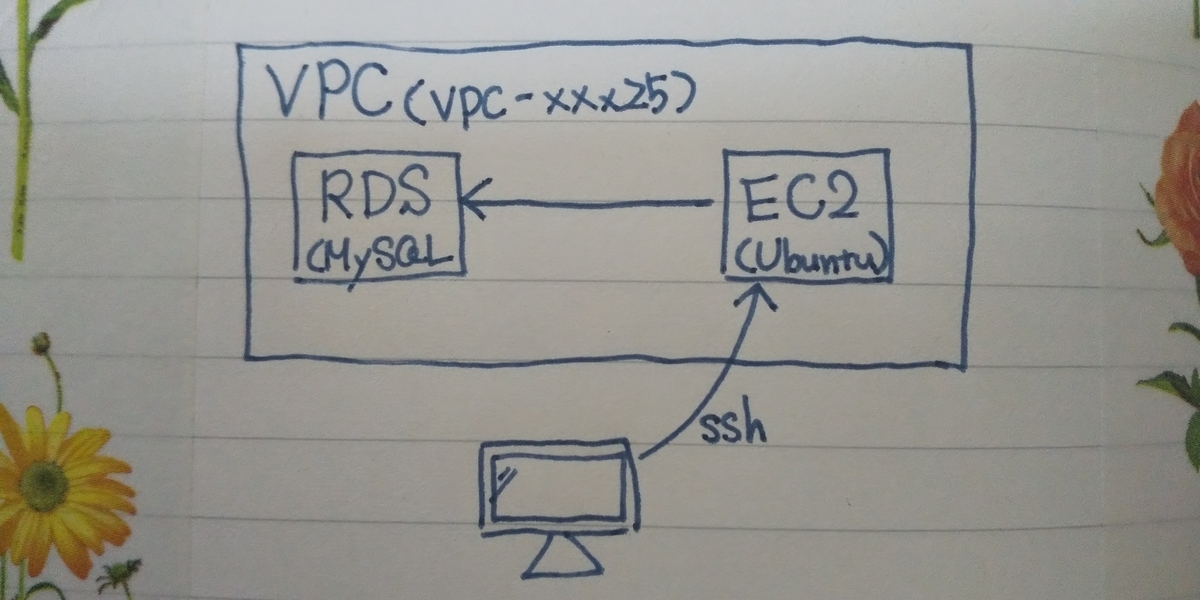 VPC (vpc-xxx25)
RDS
(MySQL
EC2
(Ubuntu)
ssh